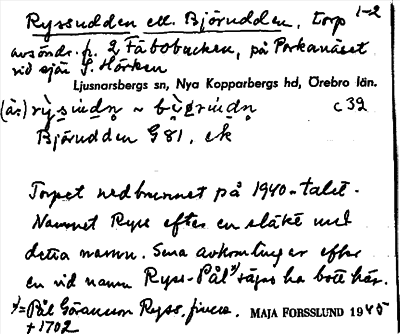 Ryssudden ell. Björudden, torp 1-2
avsöndr. fr. 2 Fäbobacken, på Porkanäset
vid sjön S. Hörken
Ljusnarsbergs sn, Nya Kopparbergs hd, Örebro län.
(än.) c 39
Björudden G 81. ek
Torpet nedbrunnet på 1940-talet.
Namnet Ryss efter en släkt med
detta namn. Sena avkomlingar efter
en vid namn Ryss-Pål x) säges ha bott här.
x) = Pål Göransson Ryss, finne. MAJA FORSSLUND 1945
† 1702